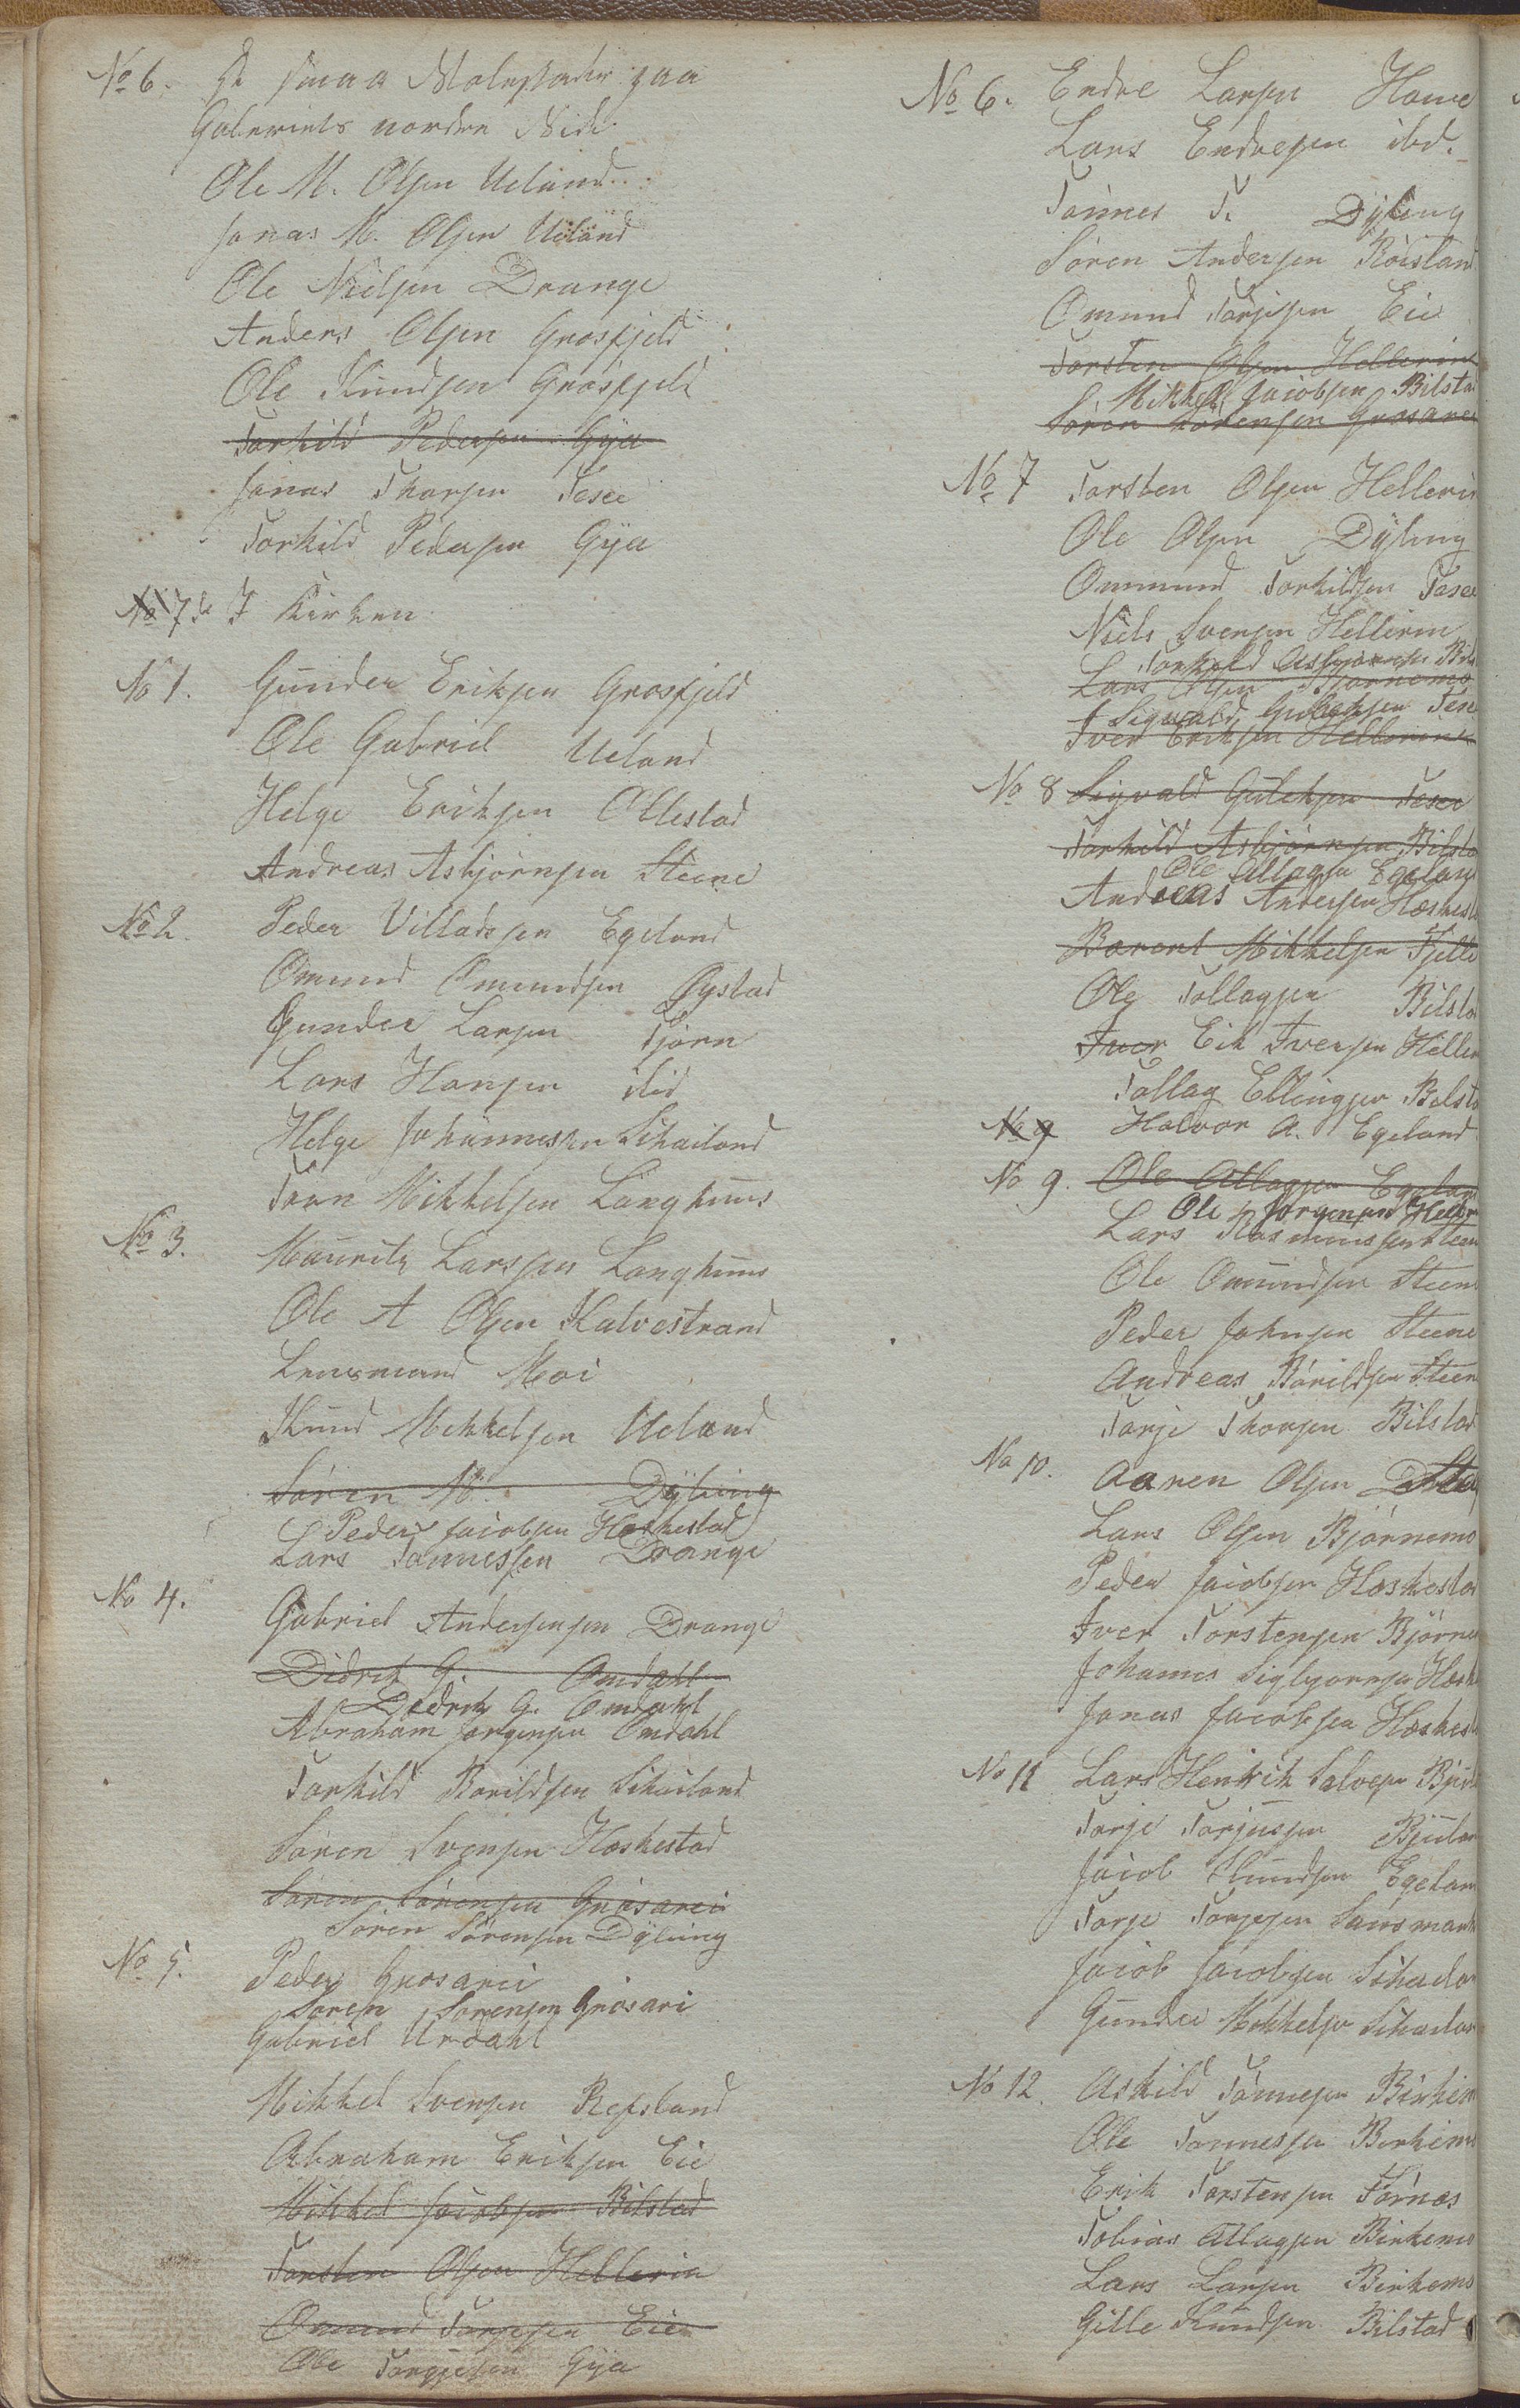 No 6. De smaa Molestader paa
Gabriels nordre Side
Ole M. Olsen Ueland
Jonas M. Olsen Ueland
Ole Nielsen Drange
Anders Olsen Grosfjeld
Ole Knudsen Grosfjeld
Torkild Pedersen Gya
Jonas Thorsen Tesee
Torkild Pedersen Gÿa
No 7de I Kirken
No 1. Gunder Eriksen Grosfjeld
Ole Gabriel Ueland
Helge Eriksen Ollestad
Andreas Asbjörnsen Steene
No 2. Peder Villadssen Egeland
Omund Omundsen Öystad
Gunder Larsen Tjörn
Lars Hansen ibid
Helge Johannessen Schailand
Tron Mikkelsen Langhuus
No 3. Mauritz Larssen Langhuus
Ole A Olsen Kalvestrand
Lensmand Moi
Knud Mikkelsen Ueland
Sören M. Dÿbing
Peder Jacobsen Heskestad
Lars Tonnessen Drange
No 4. Gabriel Andersensen Drange
Didrik G. Omdahl
Didrik G. Omdahl
Abraham Jörgensen Omdahl
Torkild Borildsen Schailand
Sören Svensen Heskestad
Sören Sörensen Grösarei
Sören Sörensen Dÿbing
No 5. Peder Grosarei
Sören Sörensen Grösari
Gabriel Urdahl
Mikkel Svensen Refsland
Abraham Eriksen Eie
Mikkel Jacobsen Bilstad
Torsten Olsen Hellerin
Omund Torjesen Eie
Ole Torgjelsen Gÿa
No 6. Endre Larsen Houe
Lars Endresen ibd.
Tönnes T. Dÿbing
Sören Andersen Röisland
Omund Torjesen Eie
Torsten Olsen Hellerin
Mikkel Jacobsen Bilsta
Sören Sörensen Grosarei
No 7 Torsten Olsen Helleri
Ole Olsen Dÿbing
Ommund Torkildsen Tesee
Niels Svensen Hellerin
Torkild Asbjörnsen Bils
Lars Olsen Bjornemo
Sigvald Gulleksen Tese
Iver Eriksen Hellerin
No 8 Sigvald Gulleksen Tesee
Torkild Asbjörnsen Bilsta
Ole Atlagsen Egelan
Andreas Andersen Heskest
Barent Mikkelsen Fjelle
Ole Tollagsen Bilsta
Iver Erik Iversen Heller
Tollag Ellingsen Bilsta
No 9 Halvor A. Egeland
No 9. Ole Atlagsen Egelan
Ole Jörgensen Heller
Lars Rasmussen Steen
Ole Omundsen Steene
Peder Johnsen Steene
Andreas Börildsen Steen
Torje Thorsen Bilstad
No 10. Aanen Olsen
Lars Olsen Björnemo
Peder Jacobsen Heskesta
Iver Torstensen Björne
Johannes Sigbjörnsen Hesk
Jonas Jacobsen Heskest
No 11 Lars Henrik Salvesen Bjul
Torje Torjussen Bjulan
Jacob Knudsen Egelan
Torje Torjesen
Jacob Jacobsen Schadan
Gunder Mikkelsen Schadan
No 12. Askild Tönnesen Birkem
Ole Tonnessen Birkemo
Erik Torstensen Tornæs
Tobias Atlagsen Birkemo
Lars Larsen Birkemo
Gitle Knudsen Bilstad